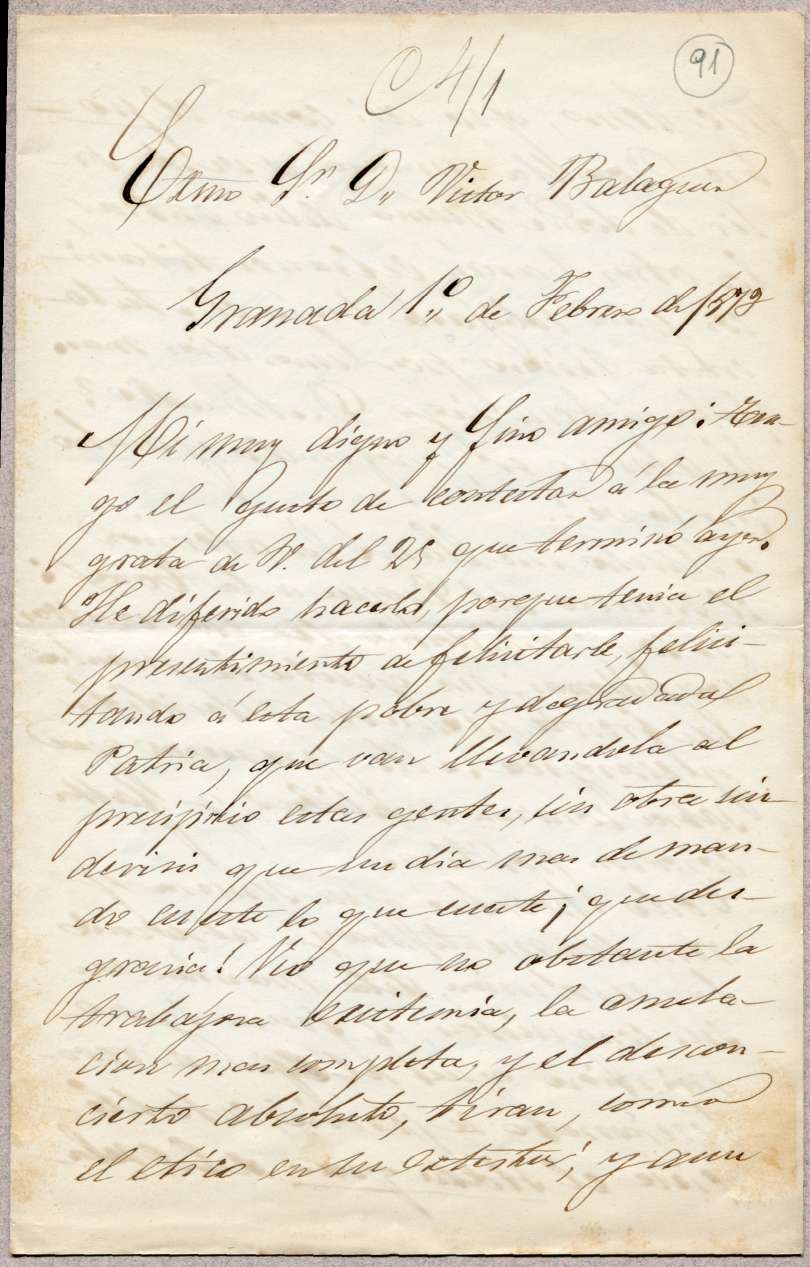 C 4/1
91
Exmo Sr. D. Victor Balaguer
Granada 1º de Febrero de 1872
Mi muy digno y fino amigo: Ten-
go el gusto de contestar á la muy
grata de V. del 25 que terminó ayer.
He diferido hacerlo, porque tenia el
presentimiento de felicitarle, felici-
tando á esta pobre y degradada
Patria, que van llevandola al
precipicio estas gentes, sin otra
que un dia mas de man-
do cueste lo que cueste; que des-
gracia! Veo que no obstante la
trabajosa existencia, la anula-
cion mas completa, y el descon-
cierto absoluto, tiran, como
el etico en su estertor; y aun